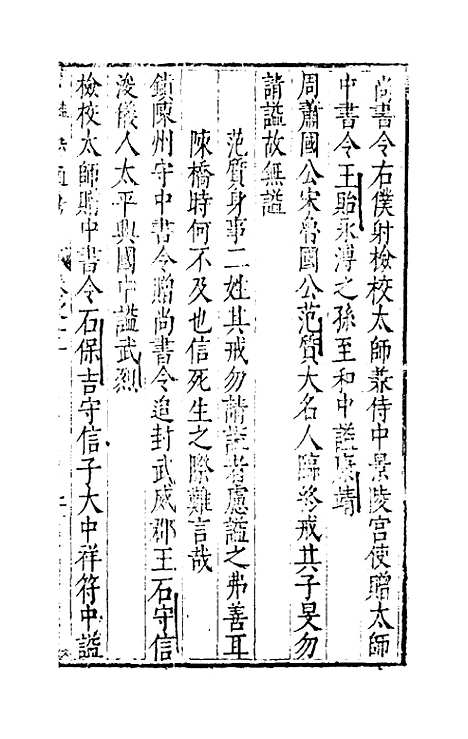 尚書令右僕射檢校太師兼侍中景陵宮使贈太師
中書令王貽永溥之孫至和中諡康靖
周蕭國公宋魯國公范質大名人臨終戒其子旻勿
請諡故無諡
范質身事二姓其戒勿請諡者慮諡之弗善耳
陳橋時何不及也信死生之際難言哉
鎮陳州守中書令贈尚書令追封武威郡王石守信
浚儀人太平興國中諡武烈
檢校太師贈中書令石保吉守信子大中祥符中諡